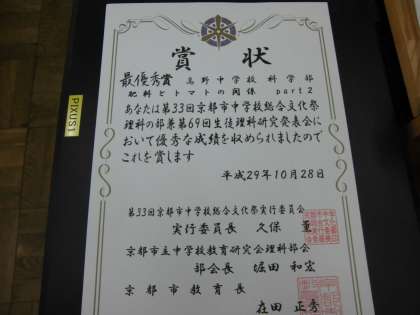 賞状
最優秀賞 高野中学校科学部
肥料とトマトの関係 part2
あなたは第33回京都市中学校総合文化祭
理科の部兼第69回生徒理科研究発表会に
おいて優秀な成績を収められましたので
これを賞します
平成29年10月28日
第33回京都市中学校総合文化祭実行委員会
実行委員長 久保 重
京都市立中学校教育研究会理科部会
部会長 堀田 和宏
京都市教育長
在田 正秀
PIXUS1